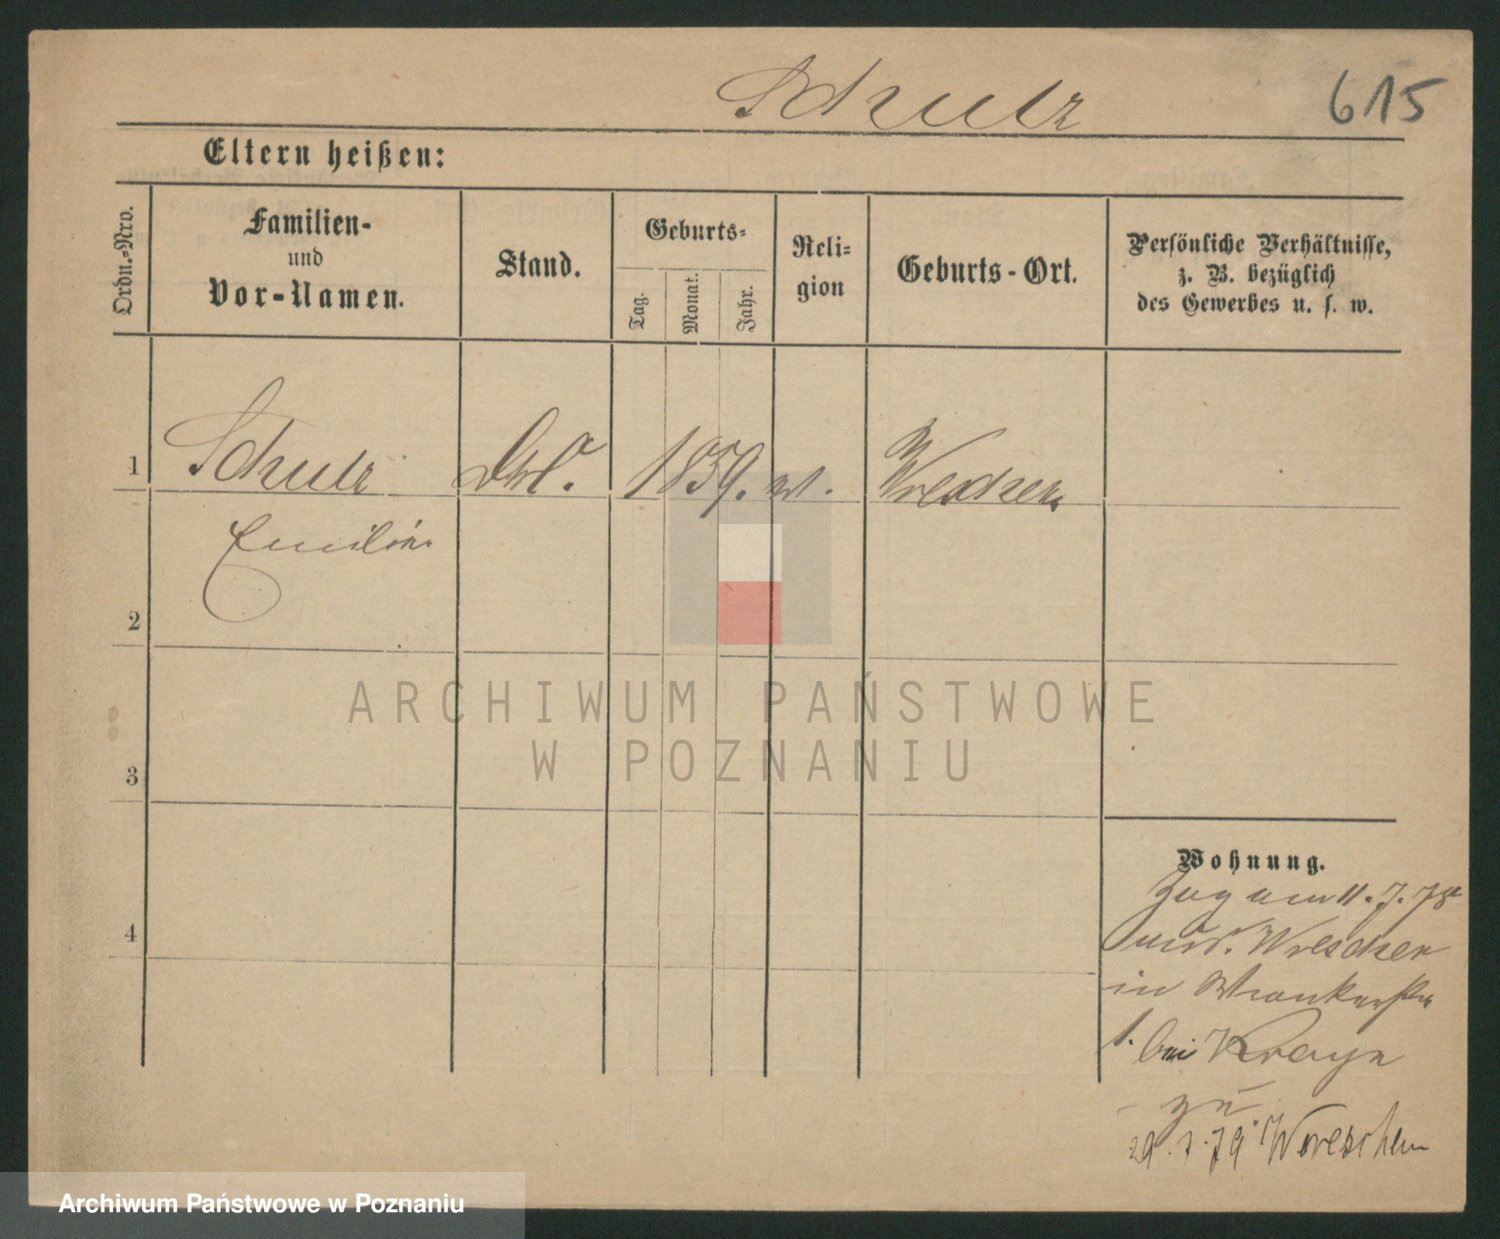 Schulz
615
Eltern heißen:
Ordn.-Nro.
Familien-
und
Vor-Namen.
Stand.
Geburts-
Tag.
Monat.
Jahr.
Reli-
gion
Geburts-Ort.
Persönliche Verhältnisse,
z. B. bezüglich
des Gewerbes u. s. w.
1
Schulz
1859.
Wreschen
Emilie
2
3
4
ARCHIWUM PAŃSTWOWE
W POZNANIU
Wohnung.
Zug am 11. 7. 78
Wreschen
in
1. bei
zu
29. 1. 79 Wreschen
Archiwum Państwowe w Poznaniu